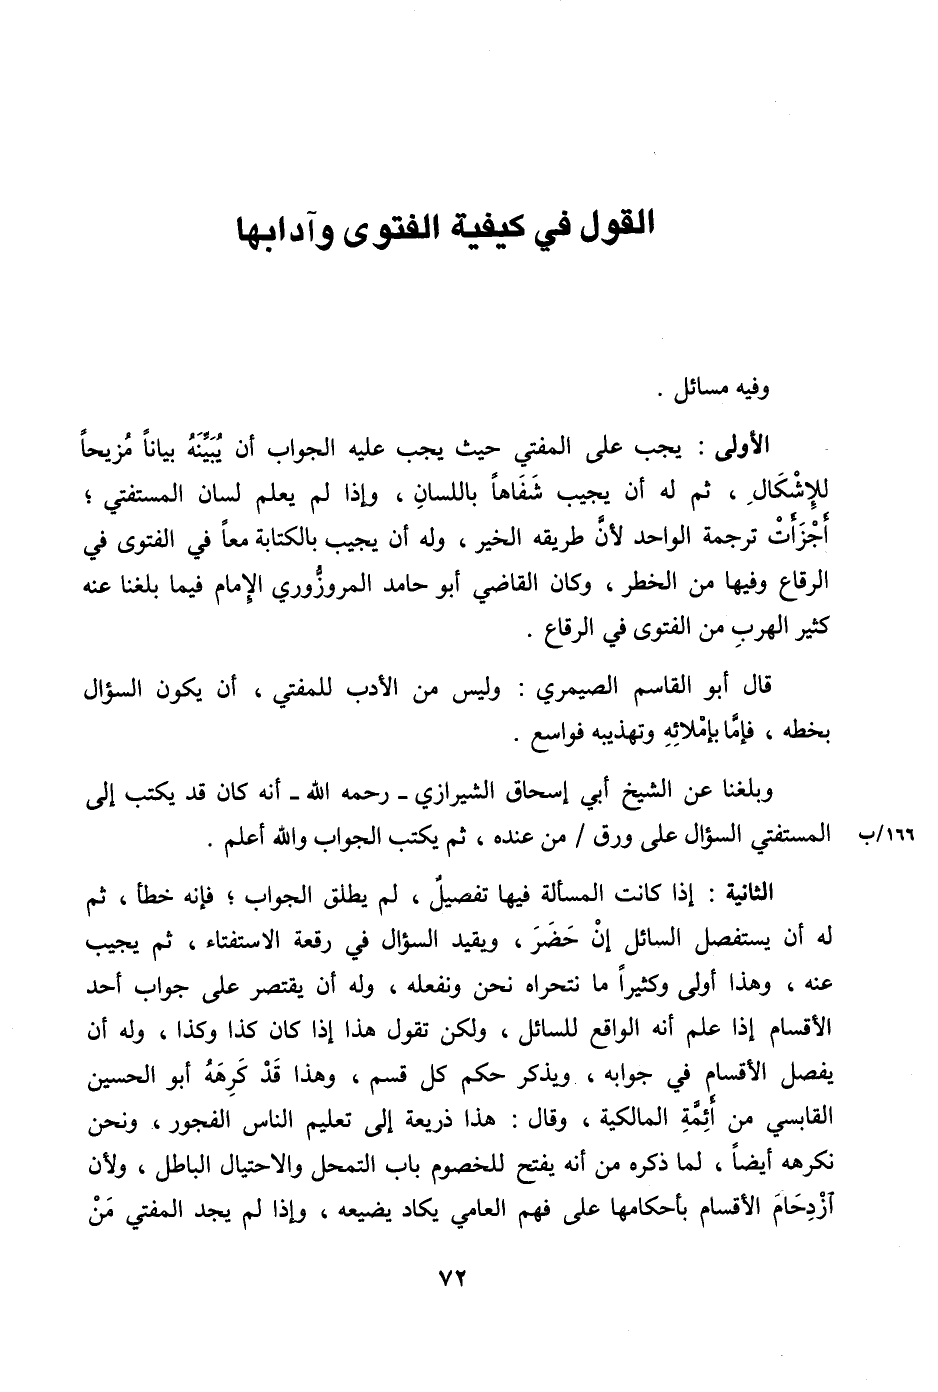 القول في كيفية الفتوى وآدابها
وفيه مسائل .
الأولى : يجب على المفتي حيث يجب عليه الجواب أن يُبَيِّنَهُ بياناً مُزيحاً
للإِشْكَالِ ، ثم له أن يجيب شَفَاهاً باللسانِ ، وإذا لم يعلم لسان المستفتي ؛
أَجْزَأَتْ ترجمة الواحد لأنَّ طريقه الخير ، وله أن يجيب بالكتابة معاً في الفتوى في
الرقاع وفيها من الخطر ، وكان القاضي أبو حامد المروزُّوري الإمام فيما بلغنا عنه
كثير الهربِ من الفتوى في الرقاع .
قال أبو القاسم الصيمري : وليس من الأدب للمفتي ، أن يكون السؤال
بخطه ، فإمَّا بإمْلائِهِ وتهذيبه فواسع .
وبلغنا عن الشيخ أبي إسحاق الشيرازي ـ رحمه الله ـ أنه كان قد يكتب إلى
المستفتي السؤال على ورق / من عنده ، ثم يكتب الجواب والله أعلم . ١٦٦/ب
الثانية : إذا كانت المسألة فيها تفصيلٌ ، لم يطلق الجواب ؛ فإنه خطأ ، ثم
له أن يستفصل السائل إنْ حَضَرَ ، ويقيد السؤال في رقعة الاستفتاء ، ثم يجيب
عنه ، وهذا أولى وكثيراً ما نتحراه نحن ونفعله ، وله أن يقتصر على جواب أحد
الأقسام إذا علم أنه الواقع للسائل ، ولكن تقول هذا إذا كان كذا وكذا ، وله أن
يفصل الأقسام في جوابه ، ويذكر حكم كل قسم ، وهذا قَدْ كَرِهَهُ أبو الحسين
القابسي من أَئِمَّةِ المالكية ، وقال : هذا ذريعة إلى تعليم الناس الفجور ، ونحن
نكرهه أيضاً ، لما ذكره من أنه يفتح للخصوم باب التمحل والاحتيال الباطل ، ولأن
آزْدِحَامَ الأقسام بأحكامها على فهم العامي يكاد يضيعه ، وإذا لم يجد المفتي مَنْ
٧٢